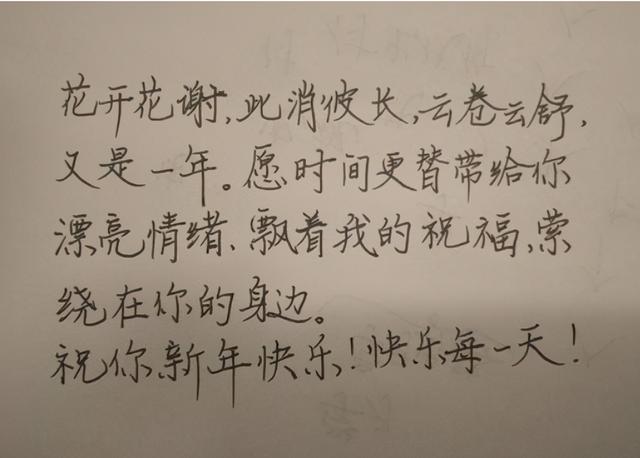 花开花谢,此消彼长,云卷云舒,
又是一年。愿时间更替带给你
漂亮情绪、飘着我的祝福,萦
绕在你的身边。
祝你新年快乐!快乐每一天!